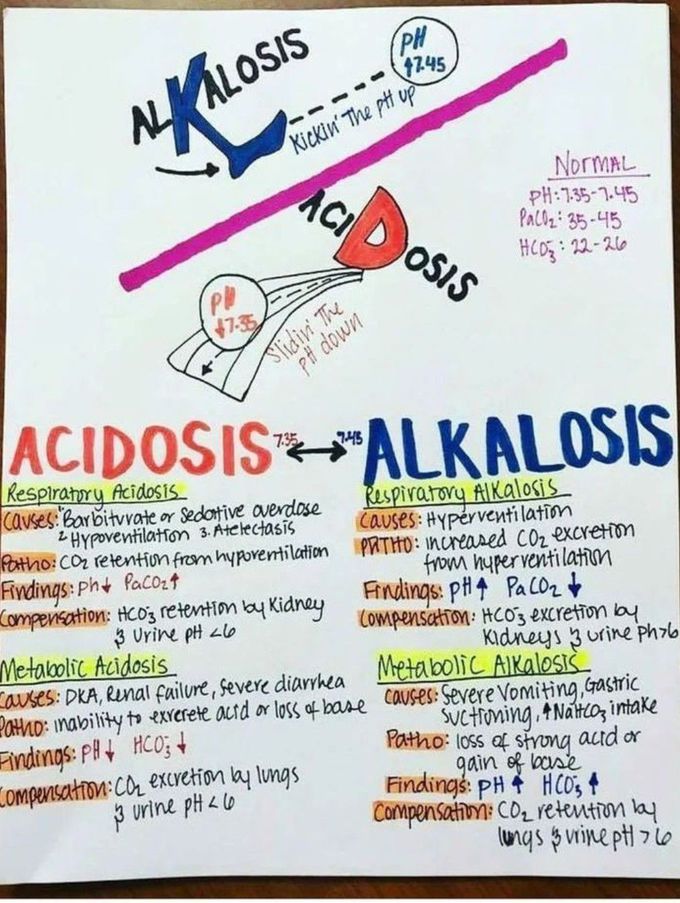 ALKALOSIS
pH
↑7.45
Kickin' The pH up
NORMAL
pH: 7.35-7.45
PaCO₂: 35-45
HCO₃⁻: 22-26
ACIDOSIS
pH
↓7.35
Slidin' The
pH down
ACIDOSIS 7.35 ↔ 7.45 ALKALOSIS
Respiratory Acidosis
Causes: ¹Barbiturate or Sedative overdose
² Hypoventilation 3. Atelectasis
Patho: CO₂ retention from hypoventilation
Findings: Ph↓ PaCO₂↑
Compensation: HCO₃⁻ retention by Kidney
& Urine pH <6
Metabolic Acidosis
Causes: DKA, Renal failure, Severe diarrhea
Patho: inability to exrerete acid or loss of base
Findings: pH↓ HCO₃⁻↓
Compensation: CO₂ excretion by lungs
& urine pH <6
Respiratory Alkalosis
Causes: Hyperventilation
PATHO: increased CO₂ excretion
from hyperventilation
Findings: pH↑ PaCO₂↓
Compensation: HCO₃⁻ excretion by
Kidneys & urine ph>6
Metabolic Alkalosis
Causes: Severe Vomiting, Gastric
Suctioning, ↑NaHCO₃ intake
Patho: loss of strong acid or
gain of base
Findings: pH↑ HCO₃⁻↑
Compensation: CO₂ retention by
lungs & urine pH >6